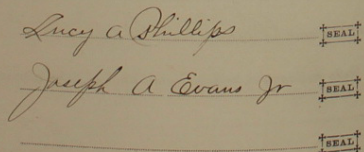 Lucy A Phillips SEAL
Joseph A Evans Jr SEAL
SEAL